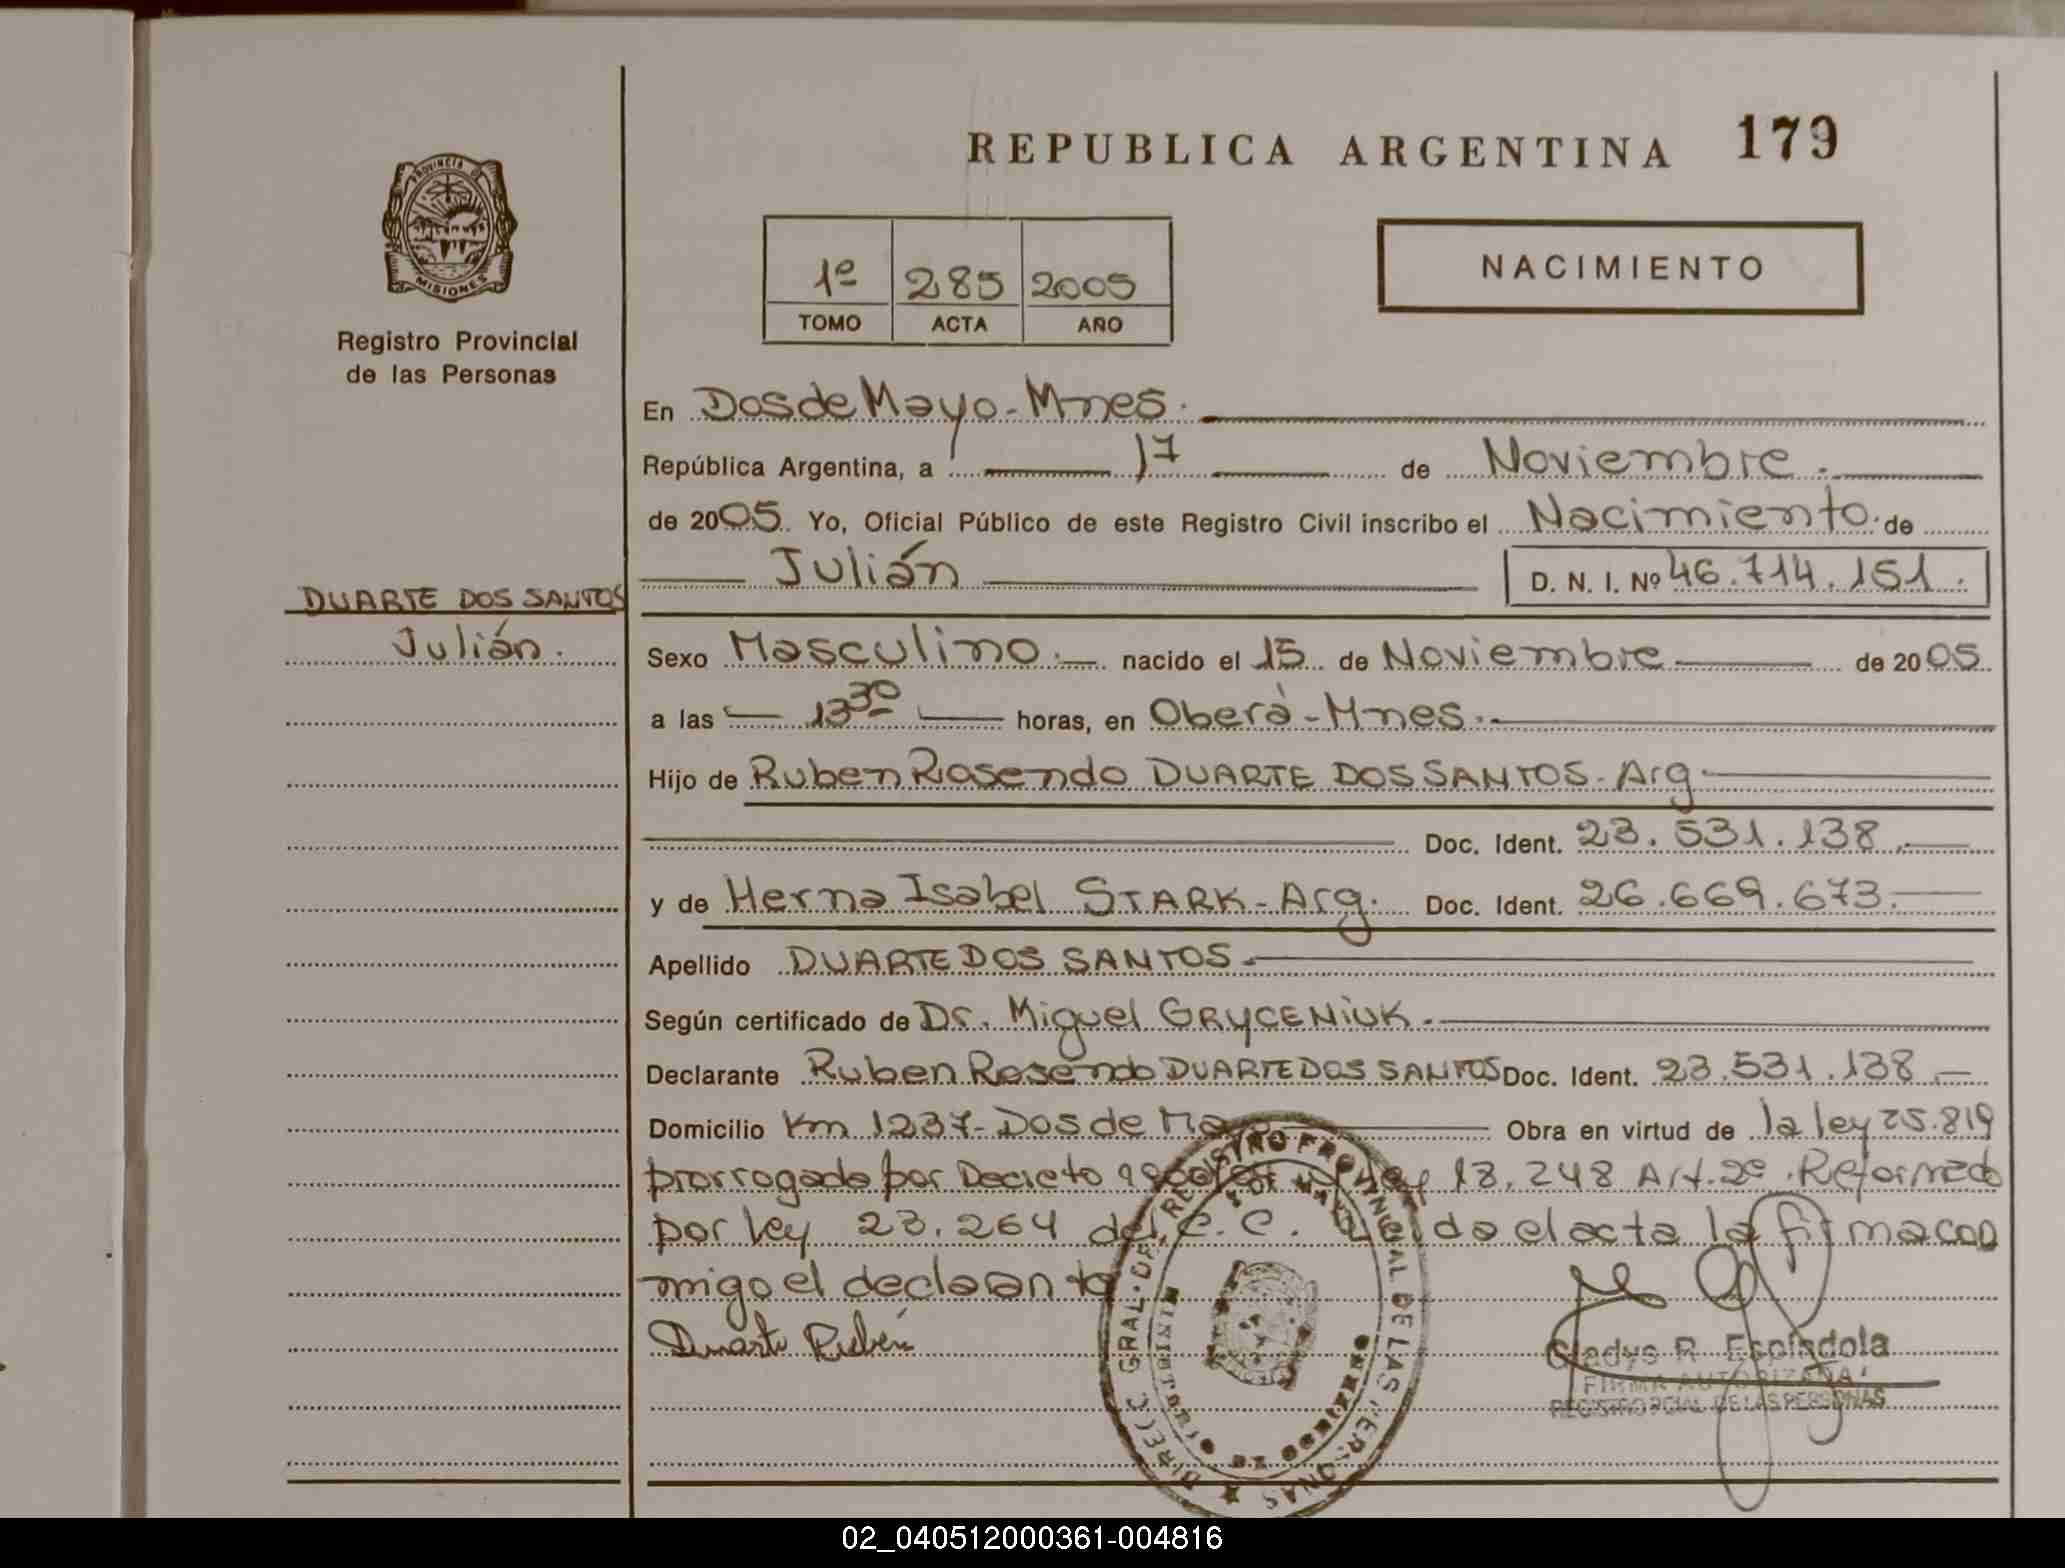 REPUBLICA ARGENTINA 179
PROVINCIA DE
MISIONES
Registro Provincial
de las Personas
1º 285 2005
TOMO ACTA AÑO
NACIMIENTO
En Dos de Mayo - Mnes.
República Argentina, a 17 de Noviembre.
de 2005. Yo, Oficial Público de este Registro Civil inscribo el Nacimiento de
Julián D. N. I. Nº 46.714.151.
DUARTE DOS SANTOS
Julián.
Sexo Masculino. nacido el 15 de Noviembre de 2005
a las 13 30 horas, en Oberá - Mnes.
Hijo de Ruben Rosendo DUARTE DOS SANTOS - Arg
Doc. Ident. 23.531.138.
y de Herna Isabel STARK - Arg. Doc. Ident. 26.669.673.
Apellido DUARTE DOS SANTOS.
Según certificado de Dr. Miguel GRYCENIUK.
Declarante Ruben Rosendo DUARTE DOS SANTOS Doc. Ident. 23.531.138.
Domicilio Km 1237 - Dos de Obra en virtud de la ley 25.819
prorrogada por Decreto 18.248 Art. 2º. Reformado
por ley 23.264 del C.C. el acta la firma con
migo el declarante
Duarte Rubén
DIRECC. GRAL. DEL REGISTRO PROVINCIAL DE LAS PERSONAS
Gladys R. Espindola
FIRMA AUTORIZADA
REGISTRO PCIAL DE LAS PERSONAS
02_040512000361-004816